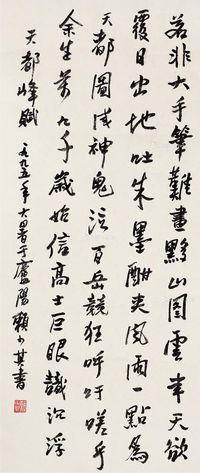 若非大手筆難畫黟山圖雲来天欲
覆日出地吐朱墨酣夾風雨一點為
天都圖成神鬼泣百岳競狂呼吁嗟乎
余生萬八千歲始信高士巨眼識沉浮
天都峰賦 一九九五年大暑于廬陽賴少其書